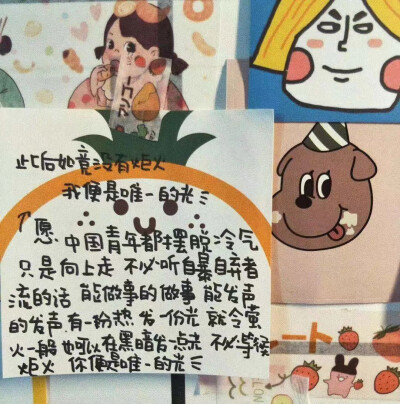 此后如竟没有炬火
我便是唯一的光
愿中国青年都摆脱冷气
只是向上走 不必听自暴自弃者
流的话 能做事的做事 能发声
的发声 有一份热 发一份光 就令萤
火一般 也可以在黑暗发一点光 不必等候
炬火 你便是唯一的光
ート